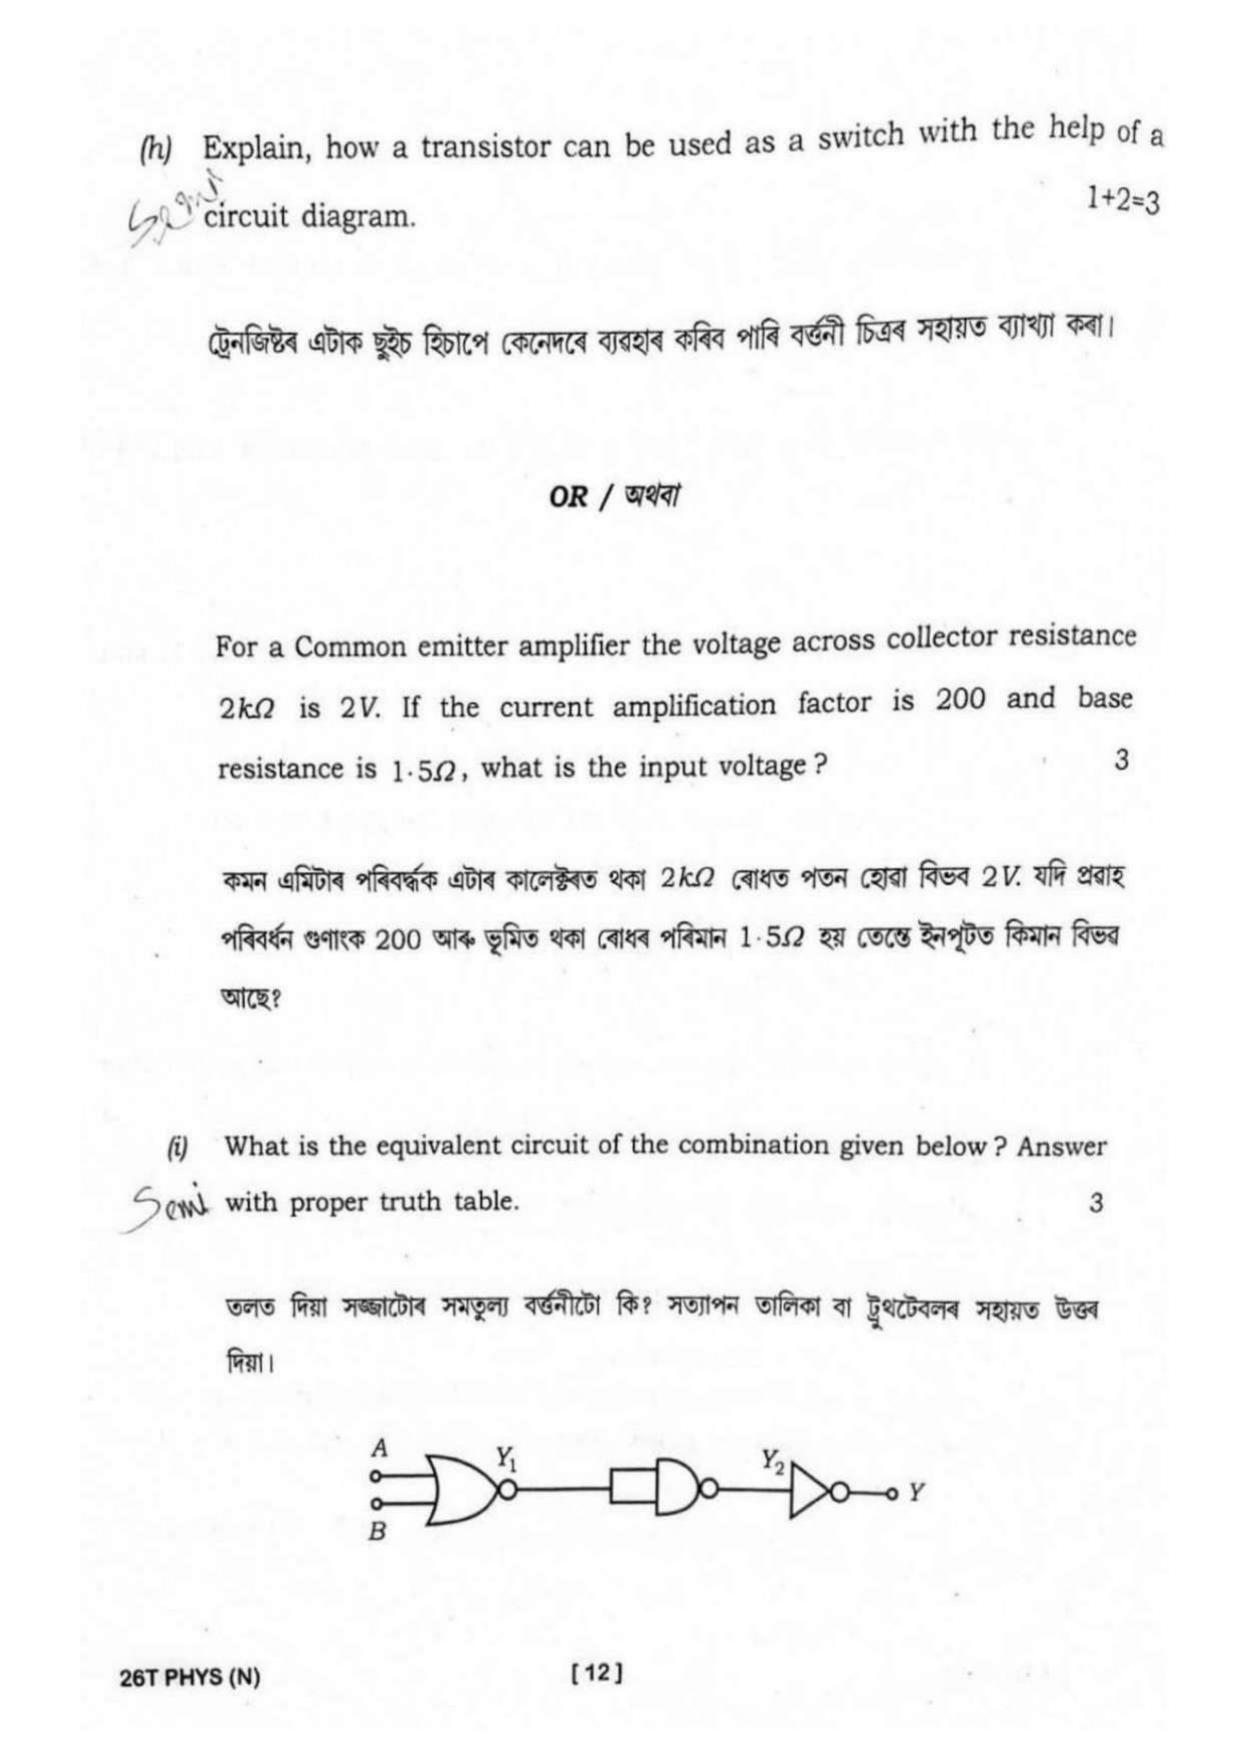 (h) Explain, how a transistor can be used as a switch with the help of a
Semi circuit diagram. 1+2=3
ট্রেনজিষ্টৰ এটাক ছুইচ হিচাপে কেনেদৰে ব্যৱহাৰ কৰিব পাৰি বৰ্ত্তনী চিত্ৰৰ সহায়ত ব্যাখ্যা কৰা।
OR / অথবা
For a Common emitter amplifier the voltage across collector resistance
2kΩ is 2V. If the current amplification factor is 200 and base
resistance is 1·5Ω, what is the input voltage? 3
কমন এমিটাৰ পৰিবৰ্দ্ধক এটাৰ কালেক্টৰত থকা 2kΩ ৰোধত পতন হোৱা বিভব 2V. যদি প্ৰৱাহ
পৰিবৰ্ধন গুণাংক 200 আৰু ভূমিত থকা ৰোধৰ পৰিমান 1·5Ω হয় তেন্তে ইনপূটত কিমান বিভৱ
আছে?
(i) What is the equivalent circuit of the combination given below? Answer
Semi with proper truth table. 3
তলত দিয়া সজ্জাটোৰ সমতুল্য বৰ্ত্তনীটো কি? সত্যাপন তালিকা বা ট্ৰুথটেবলৰ সহায়ত উত্তৰ
দিয়া।
A Y1 Y2 Y
B
26T PHYS (N) [ 12 ]